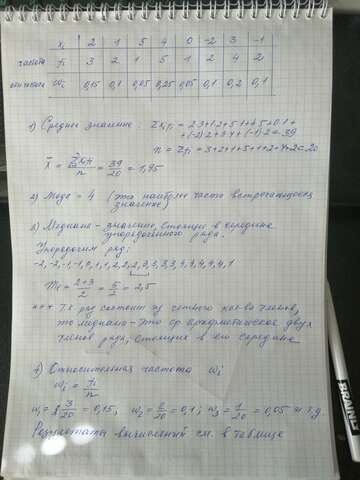 xi 2 1 5 4 0 -2 3 -1
частота fi 3 2 1 5 1 2 4 2
относит. wi 0,15 0,1 0,05 0,25 0,05 0,1 0,2 0,1
1) Среднее значение: Σxifi = 2·3+1·2+5·1+4·5+0·1+
+(-2)·2+3·4+(-1)·2=39
n = Σfi = 3+2+1+5+1+2+4+2=20
x̄ = Σxifi/n = 39/20 = 1,95
2) Мода = 4 (это наиболее часто встречающееся
значение)
3) Медиана - значение, стоящее в середине
упорядоченного ряда.
Упорядочим ряд:
-2,-2,-1,-1,0,1,1,2,2,2,3,3,3,3,4,4,4,4,4,
m = 2+3/2 = 5/2 = 2,5
т.к. ряд состоит из четного кол-ва членов,
то медиана - это ср. арифметическое двух
членов ряда, стоящих в его середине
4) Относительная частота wi
wi = fi/n
w1 = 3/20 = 0,15; w2 = 2/20 = 0,1; w3 = 1/20 = 0,05 и т.д.
Результаты вычислений см. в таблице